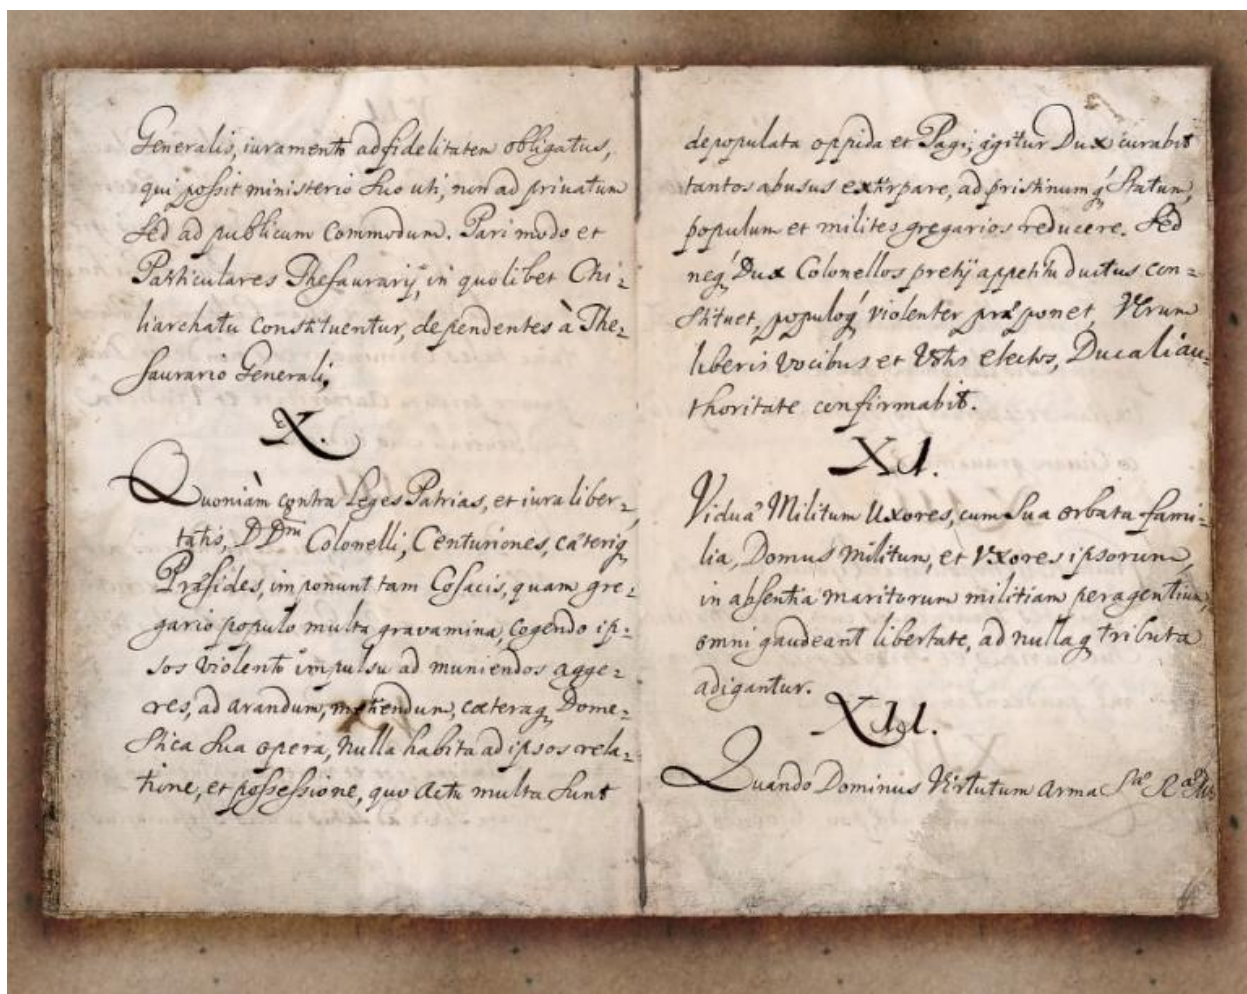 Generalis, iuramento ad fidelitatem obligatus,
qui possit ministerio suo uti, non ad privatum
sed ad publicum commodum. Pari modo et
Particulares Thesaurarij, in quolibet Chi=
liarchatu constituentur, dependentes à The=
saurario Generali.
X.
Quoniàm contra Leges Patrias, et iura liber=
tatis, DDni Colonelli, Centuriones, cæteriq
Præsides, imponunt tam Cosacis, quam gre=
gario populo multa gravamina, cogendo ip=
sos violento impulsu ad muniendos agge=
res, ad arandum, metiendum, cæteraq Dome=
stica sua opera, nulla habita ad ipsos rela=
tione, et possessione, quo actu multa sunt
depopulata oppida et Pagi; igitur Dux curabit
tantos abusus extirpare, ad pristinum q Statum,
populum et milites gregarios reducere. Sed
neq Dux Colonellos pretij appetitu ductus con=
stituet, populoq violenter præponet, Verum
liberis vocibus et Votis electos, Ducali au=
thoritate confirmabit.
XI.
Viduæ Militum Uxores, cum sua orbata fami=
lia, Domus militum, et Uxores ipsorum,
in absentia maritorum militiam peragentium,
omni gaudeant libertate, ad nullaq tributa
adigantur.
XII.
Quando Dominus Virtutum arma